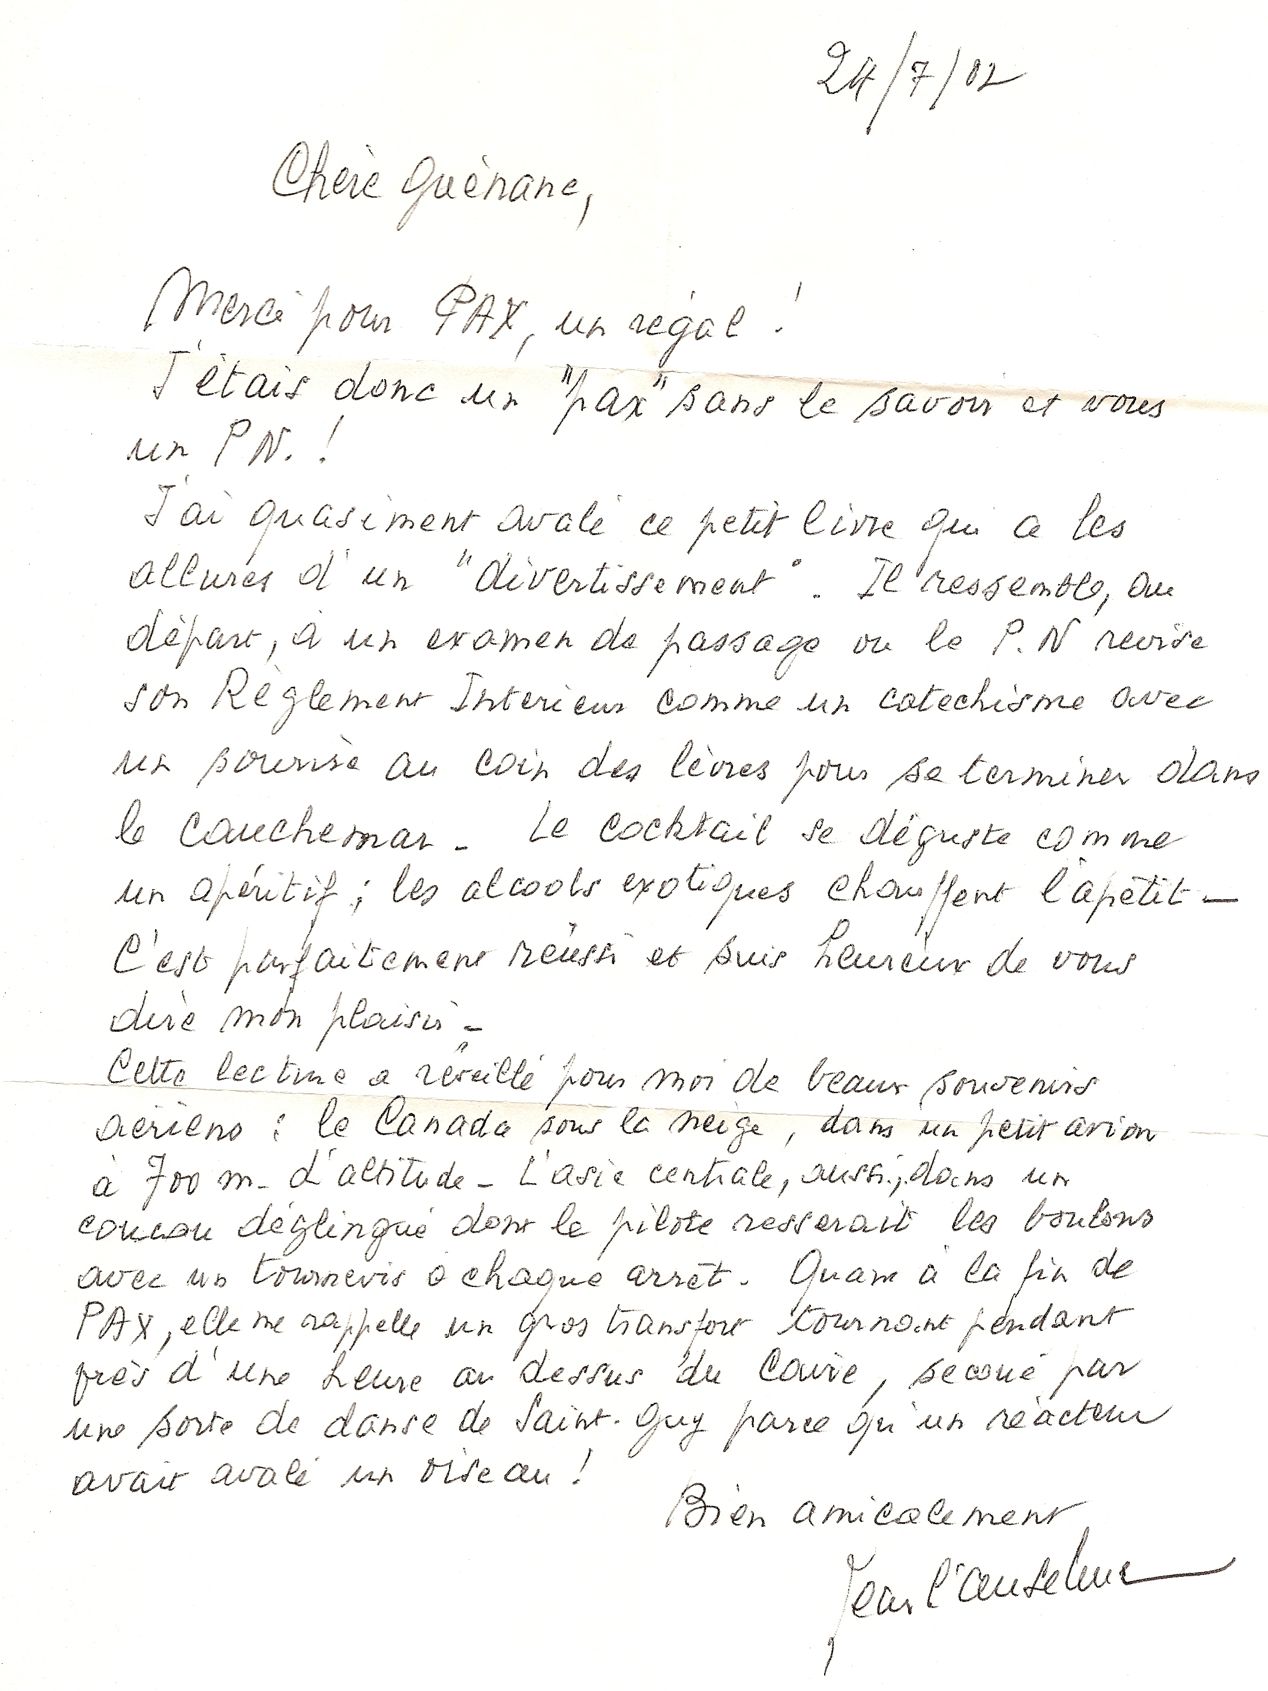 24/7/02
Chère Guénane,
Merci pour PAX, un régal !
J'étais donc un "pax" sans le savoir et vous
un PN. !
J'ai quasiment avalé ce petit livre qui a les
allures d'un "divertissement". Il ressemble, au
départ, à un examen de passage ou le P.N revise
son Règlement Interieur comme un catechisme avec
un sourire au coin des lèvres pour se terminer dans
le cauchemar - Le cocktail se déguste comme
un apéritif ; les alcools exotiques chauffent l'apétit -
C'est parfaitement réussi et suis heureux de vous
dire mon plaisir -
Cette lecture a réveillé pour moi de beaux souvenirs
aériens : le Canada sous la neige, dans un petit avion
à 700 m. d'altitude - L'asie centrale, aussi, dans un
coucou déglingué dont le pilote resserait les boulons
avec un tournevis à chaque arrêt. Quant à la fin de
PAX, elle me rappelle un gros transport tournant pendant
près d'une heure au dessus du Caire, secoué par
une sorte de danse de Saint-Guy parce qu'un réacteur
avait avalé un oiseau !
Bien amicalement
Jean l'Anselme